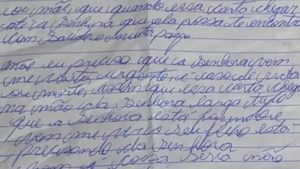 mãe que quando essa carta chegar
até a senhora que ela possa te encontrar
com saúde e muita paz
mãe eu preciso que a senhora vem
me visitar urgente é caso de
morte, assim que essa carta chegar
na mão da senhora larga tudo
que a senhora está fazendo e
vem me ver o seu filho está
precisando da senhora
coisa séria não